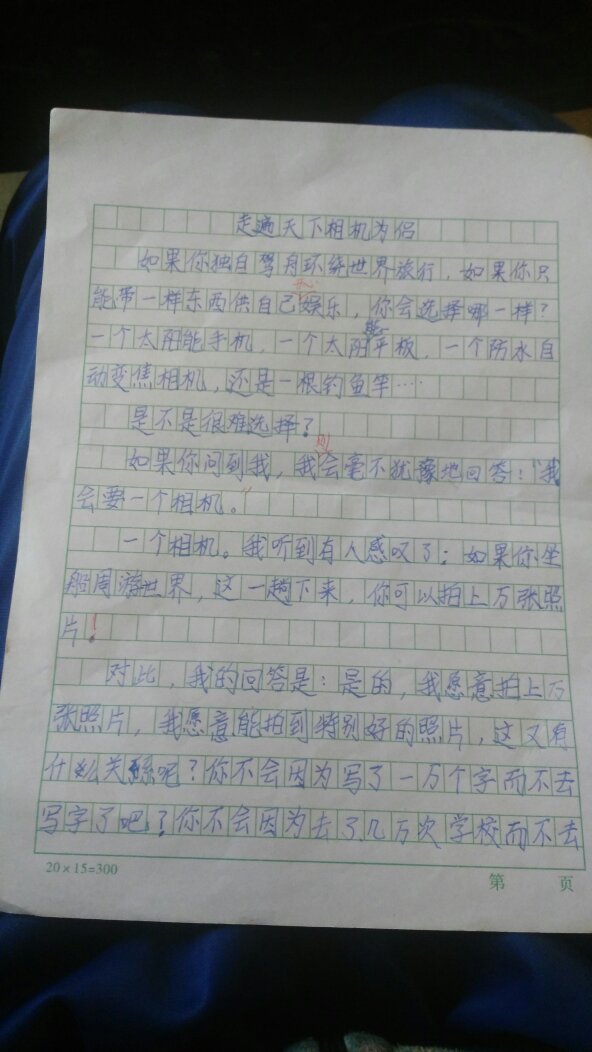 走遍天下相机为侣
如果你独自驾舟环绕世界旅行，如果你只
能带一样东西供自己娱乐，你会选择哪一样？
一个太阳能手机，一个太阳能平板，一个防水自
动变焦相机，还是一根钓鱼竿……
是不是很难选择？
如果你问到我，我会毫不犹豫地回答：“我
会要一个相机。”
一个相机。我听到有人感叹了：如果你坐
船周游世界，这一趟下来，你可以拍上万张照
片！
对此，我的回答是：是的，我愿意拍上万
张照片，我愿意能拍到特别好的照片，这又有
什么关系呢？你不会因为写了一万个字而不去
写字了吧？你不会因为去了几万次学校而不去
20×15=300
第 页